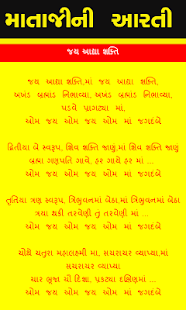 માતાજીની આરતી
જય આદ્યા શક્તિ
જય આદ્યા શક્તિ,માં જય આદ્યા શક્તિ,
અખંડ બ્રહ્માંડ નિભાવ્યા, અખંડ બ્રહ્માંડ નિભાવ્યા,
પડવે પ્રગટ્યા માં,
ઓમ જય ઓમ જય ઓમ માં જગદંબે
દ્વિતિયા બે સ્વરૂપ, શિવ શક્તિ જાણું,માં શિવ શક્તિ જાણું
બ્રહ્મા ગણપતિ ગાવે, હર ગાવે હર માં ...
ઓમ જય ઓમ જય ઓમ માં જગદંબે
તૃતિયા ત્રણ સ્વરૂપ, ત્રિભુવનમાં બેઠા,માં ત્રિભુવનમાં બેઠા
ત્રયા થકી તરવેણી તુ તરવેણી માં ...
ઓમ જય ઓમ જય ઓમ માં જગદંબે
ચોથે ચતુરા મહાલક્ષ્મી માં, સચરાચર વ્યાપ્યા,માં
સચરાચર વ્યાપ્યા
ચાર ભુજા ચૌ દિશા, પ્રકટ્યાં દક્ષિણમાં ...
ઓમ જય ઓમ જય ઓમ માં જગદંબે